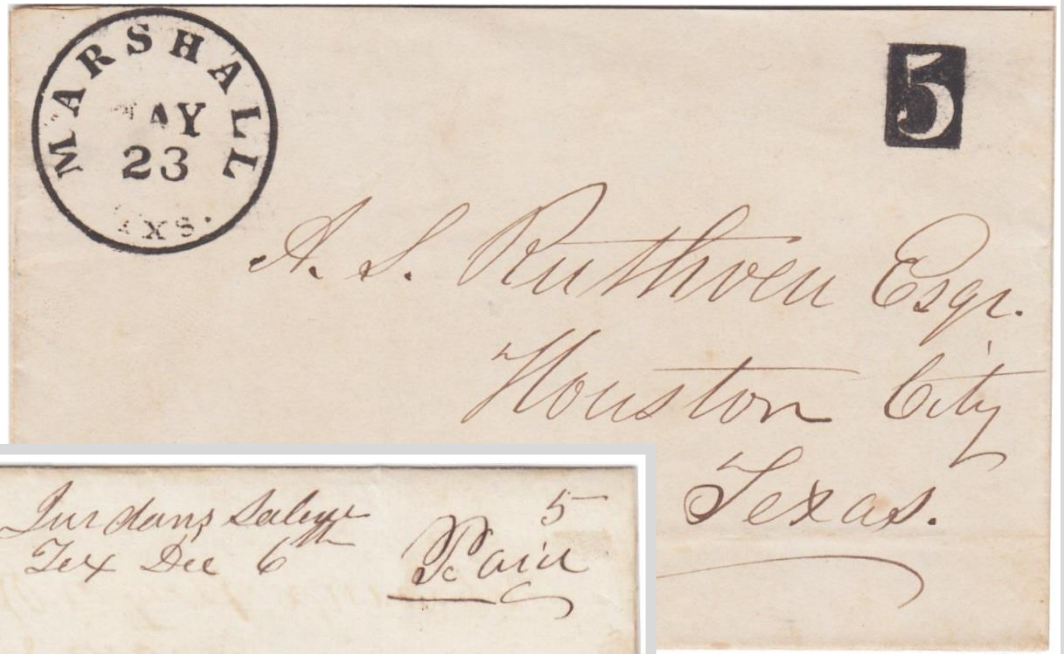 MARSHALL
MAY
23
TXS.
5
A. S. Ruthven Esqr.
Houston City
Texas.
Jurdans Saloye
Tex Dec 6
5
Paid